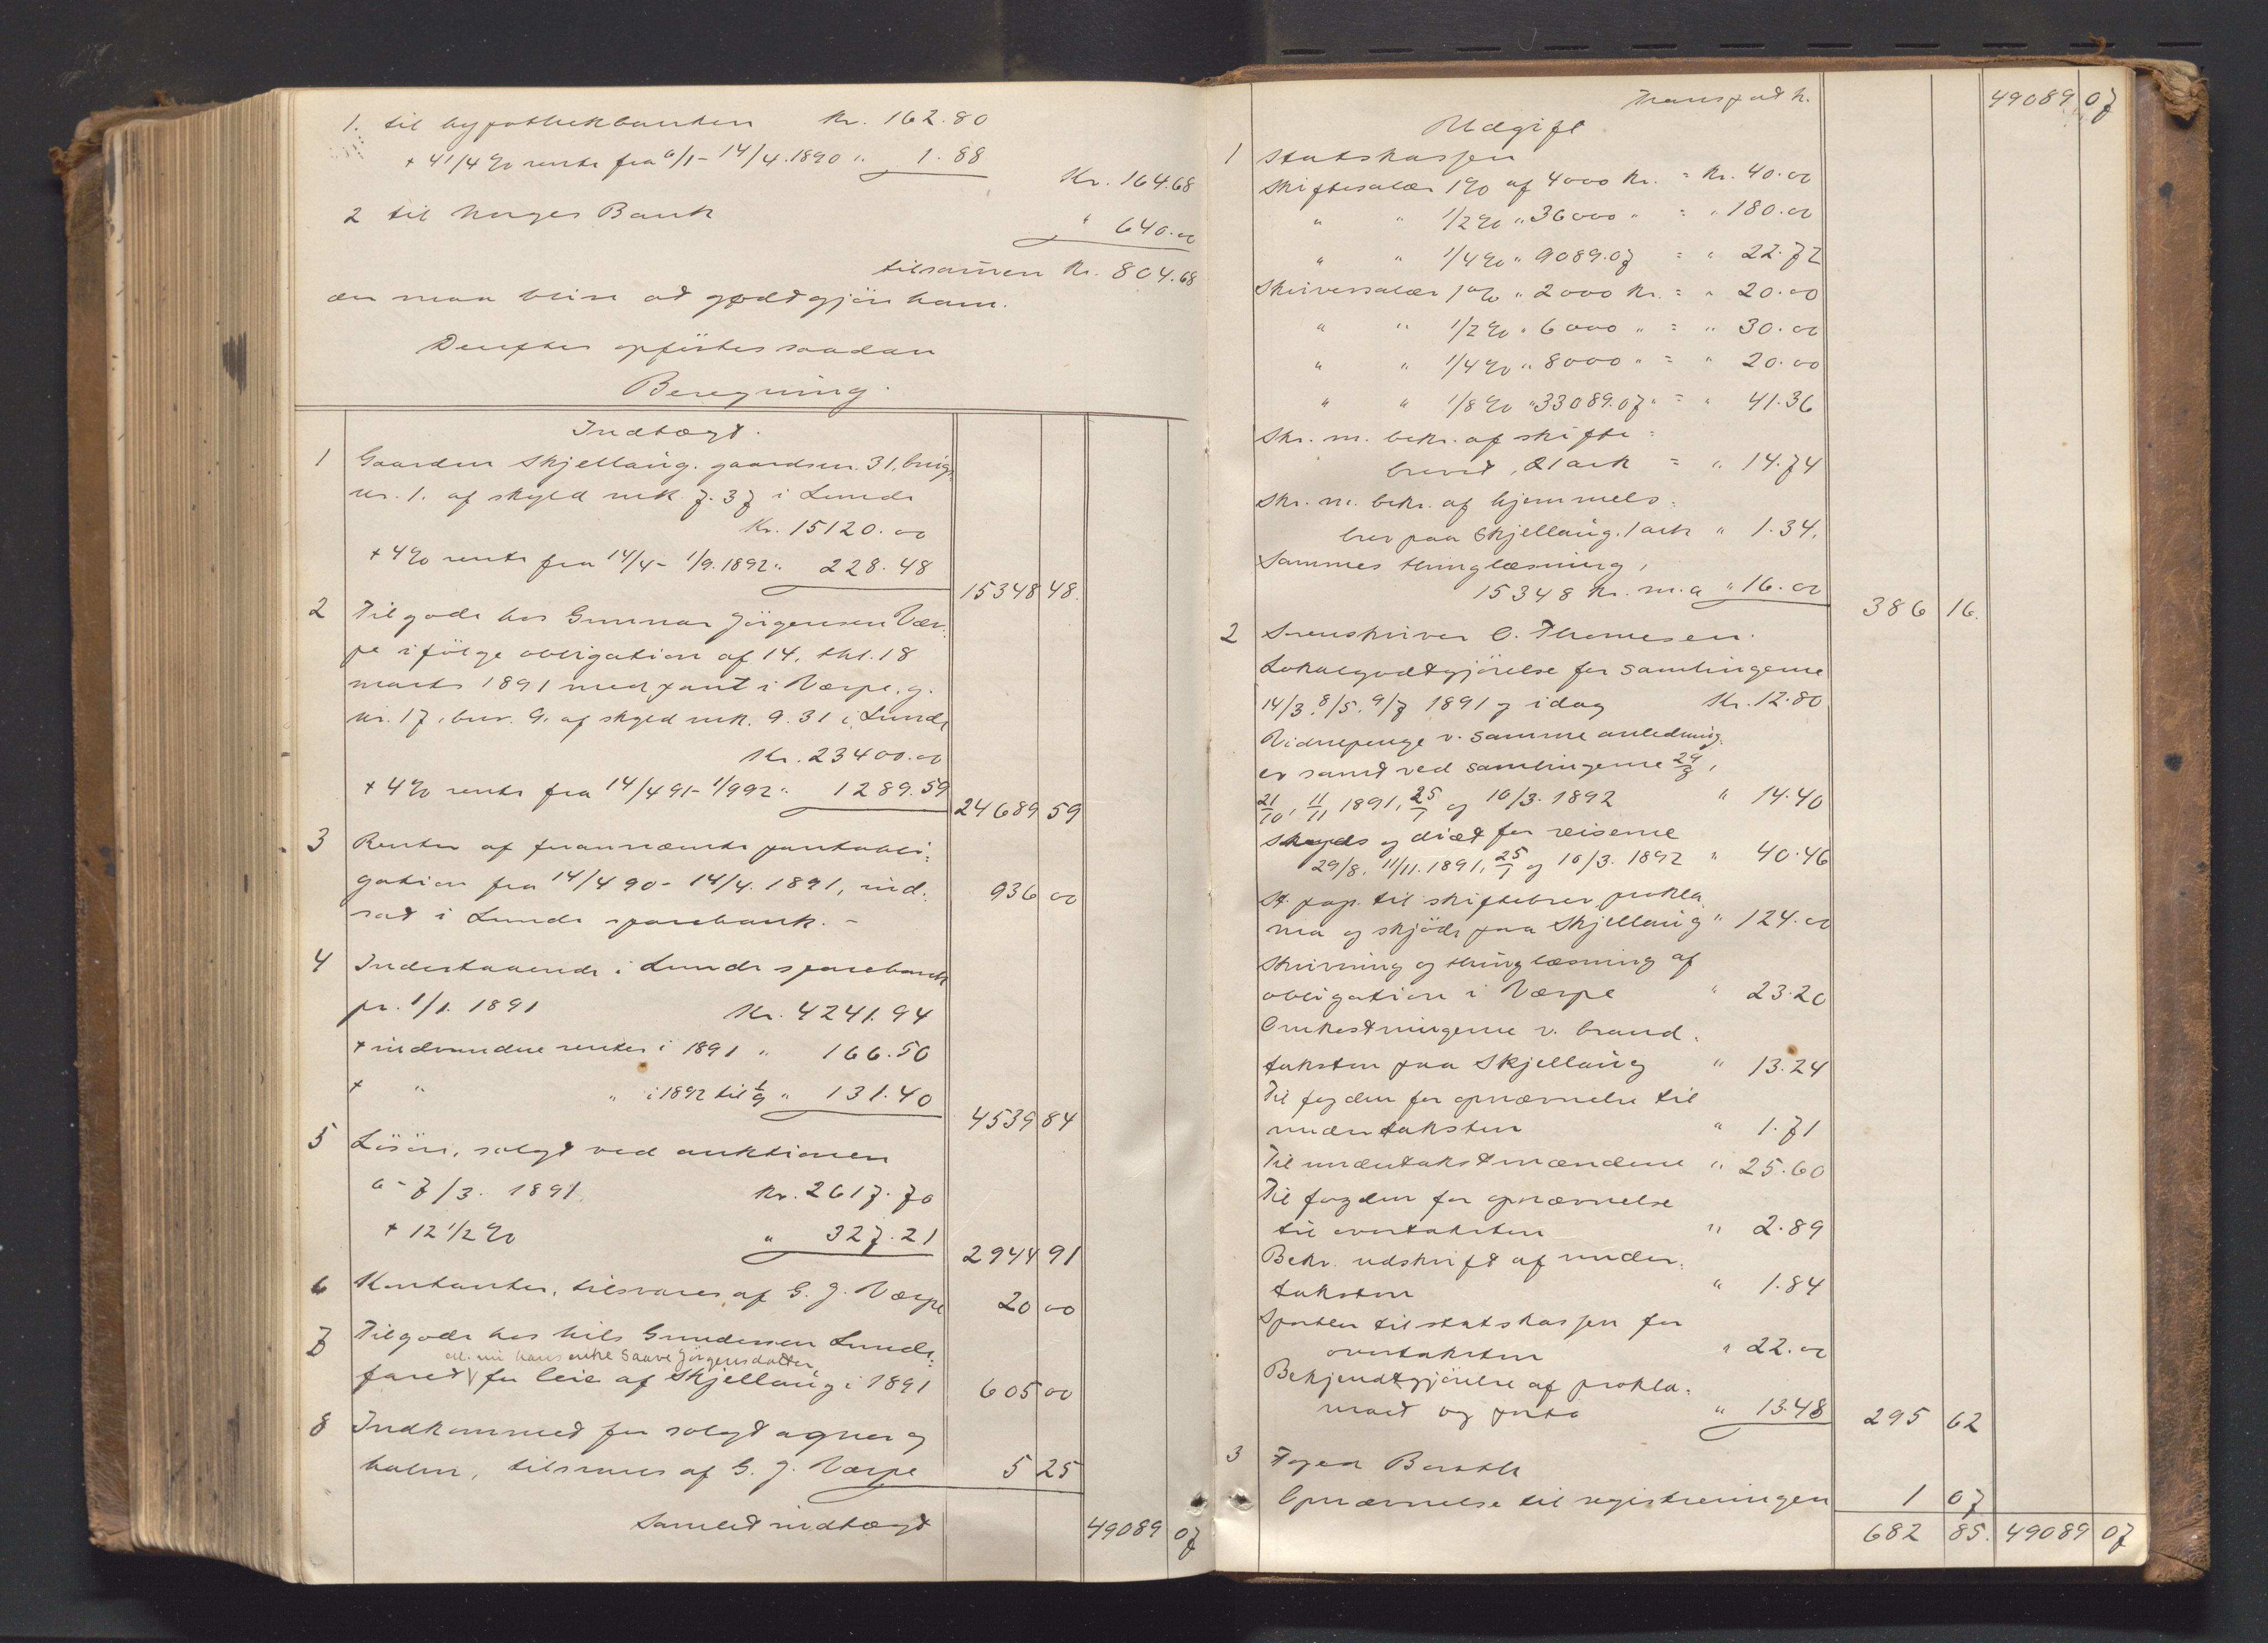 1. til hypothekbanken Kr. 162.80
+ 4 1/4 % rente fra 6/1 - 14/4. 1890 " 1.88
Kr. 164.68
2 til Norges Bank
" 640.00
tilsammen Kr. 804.68
der maa blive at godtgjöre ham.
Derefter opförtes saadan
Beregning.
Indtægt.
1 Gaarden Skjellaug. gaardsn. 31, brugs
nr. 1. af skyld mk. 7.37 i Lunde
Kr. 15120.00
+ 4 % rente fra 14/4 - 1/9. 1892 " 228.48
15348 48.
2 Tilgode hos Gunnar Jörgensen Vær-
pe ifölge obligation af 14. thl. 18
marts 1891 med pant i Værpe, g.
nr. 17, bnr. 9. af skyld mk. 9.31 i Lunde
Kr. 23400.00
+ 4 % rente fra 14/4 91 - 1/9 92 " 1289.59
24689 59
3 Renter af frannævnte pantobli-
gation fra 14/4 90 - 14/4. 1891, ind- 936 00
sat i Lunde sparebank. -
4 Indestaaende i Lunde sparebank
pr. 1/1. 1891 Kr. 4241.94
+ indvundne renter i 1891 " 166.50
+ " " i 1892 til 1/9 " 131.40
4539 84
5 Lösöre, solgt ved auktionen
6-7/3. 1891. Kr. 2617.70
+ 12 1/2 % " 327.21
2944 91
6 Kontanter, tilsvares af G. J. Værpe 20 00
7 Tilgode hos Nils Gundersen Lunde-
ell. nu hans enke Saave Jörgensdatter
faret for leie af Skjellaug i 1891 605 00
8 Indkommet for solgt agner og
halm, tilsvares af G. J. Værpe 5 25
Samlet indtægt 49089 07
Transport kr. 49089 07
Udgift
1 Statskassen
Skiftesalær 1 % af 4000 Kr. = Kr. 40.00
" " 1/2 % " 36000 " = " 180.00
" " 1/4 % " 9089.07 = " 22.72
Skriversalær 1 % " 2000 Kr. = " 20.00
" " 1/2 % " 6000 " = " 30.00
" " 1/4 % " 8000 " = " 20.00
" " 1/8 % " 33089.07 " = " 41.36
Skr. m. bekr. af skifte-
brevet, 21 ark = " 14.74
Skr. m. bekr. af hjemmels-
brev paa Skjellaug. 1 ark " 1.34.
Sammes thinglæsning,
15348 kr. m.a " 16.00
386 16.
2 Sorenskriver C. Thomesen.
Lokalgodtgjörelse for samlingerne
14/3. 8/5. 9/7 1891 og idag Kr. 12.80
Vidnepenge v. samme anledning
er samt ved samlingerne 29/8,
21/10, 11/11 1891, 25/1 og 10/3. 1892 " 14.40
Skyds og diæt for reiserne
29/8. 11/11. 1891, 25/1 og 10/3. 1892 " 40.46
St. pap. til skiftebrev, prokla
ma og skjöde paa Skjellaug " 124.00
Skrivning og thinglæsning af
obligation i Værpe " 23.20
Omkostningerne v. brand-
taksten paa Skjellaug " 13.24
Til fogden for opnævnelse til
undertaksten " 1.71
Til undertakstmændene " 25.60
Til fogden for opnævnelse
til overtaksten " 2.89
Bekr. udskrift af under-
taksten " 1.84
Sportler til statskassen for
overtaksten " 22.00
Bekjendtgjörelse af prokla-
maet og porto " 13.48
295 62
3 Foged Barth
Opnævnelse til registreringen 1 07
682 85. 49089 07